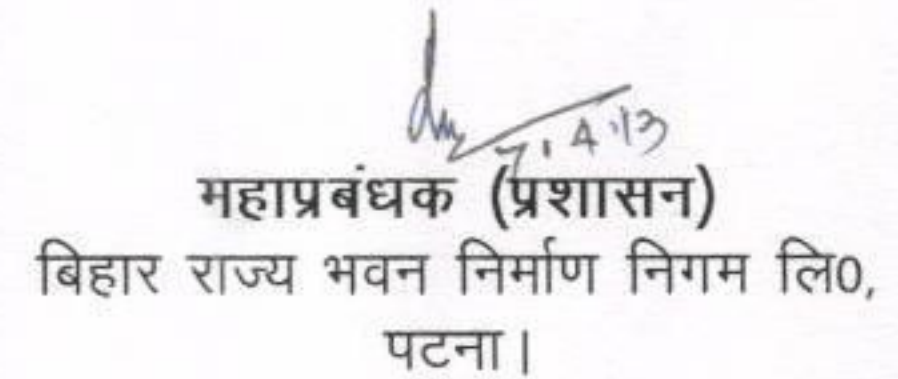 7.4.13
महाप्रबंधक (प्रशासन)
बिहार राज्य भवन निर्माण निगम लि0,
पटना।